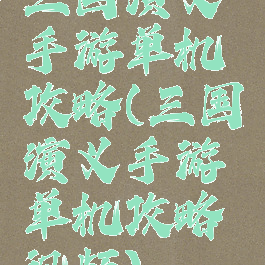 三国演义
手游单机
攻略(三国
演义手游
单机攻略
视频)